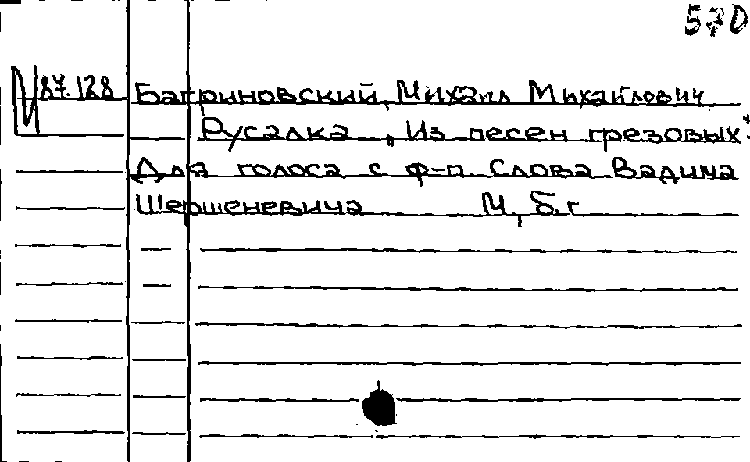 570
И 87.128 Багриновский, Михаил Михайлович
Русалка, Из песен грезовых:
Для голоса с ф-п. Слова Вадима
Шершеневича М, б.г